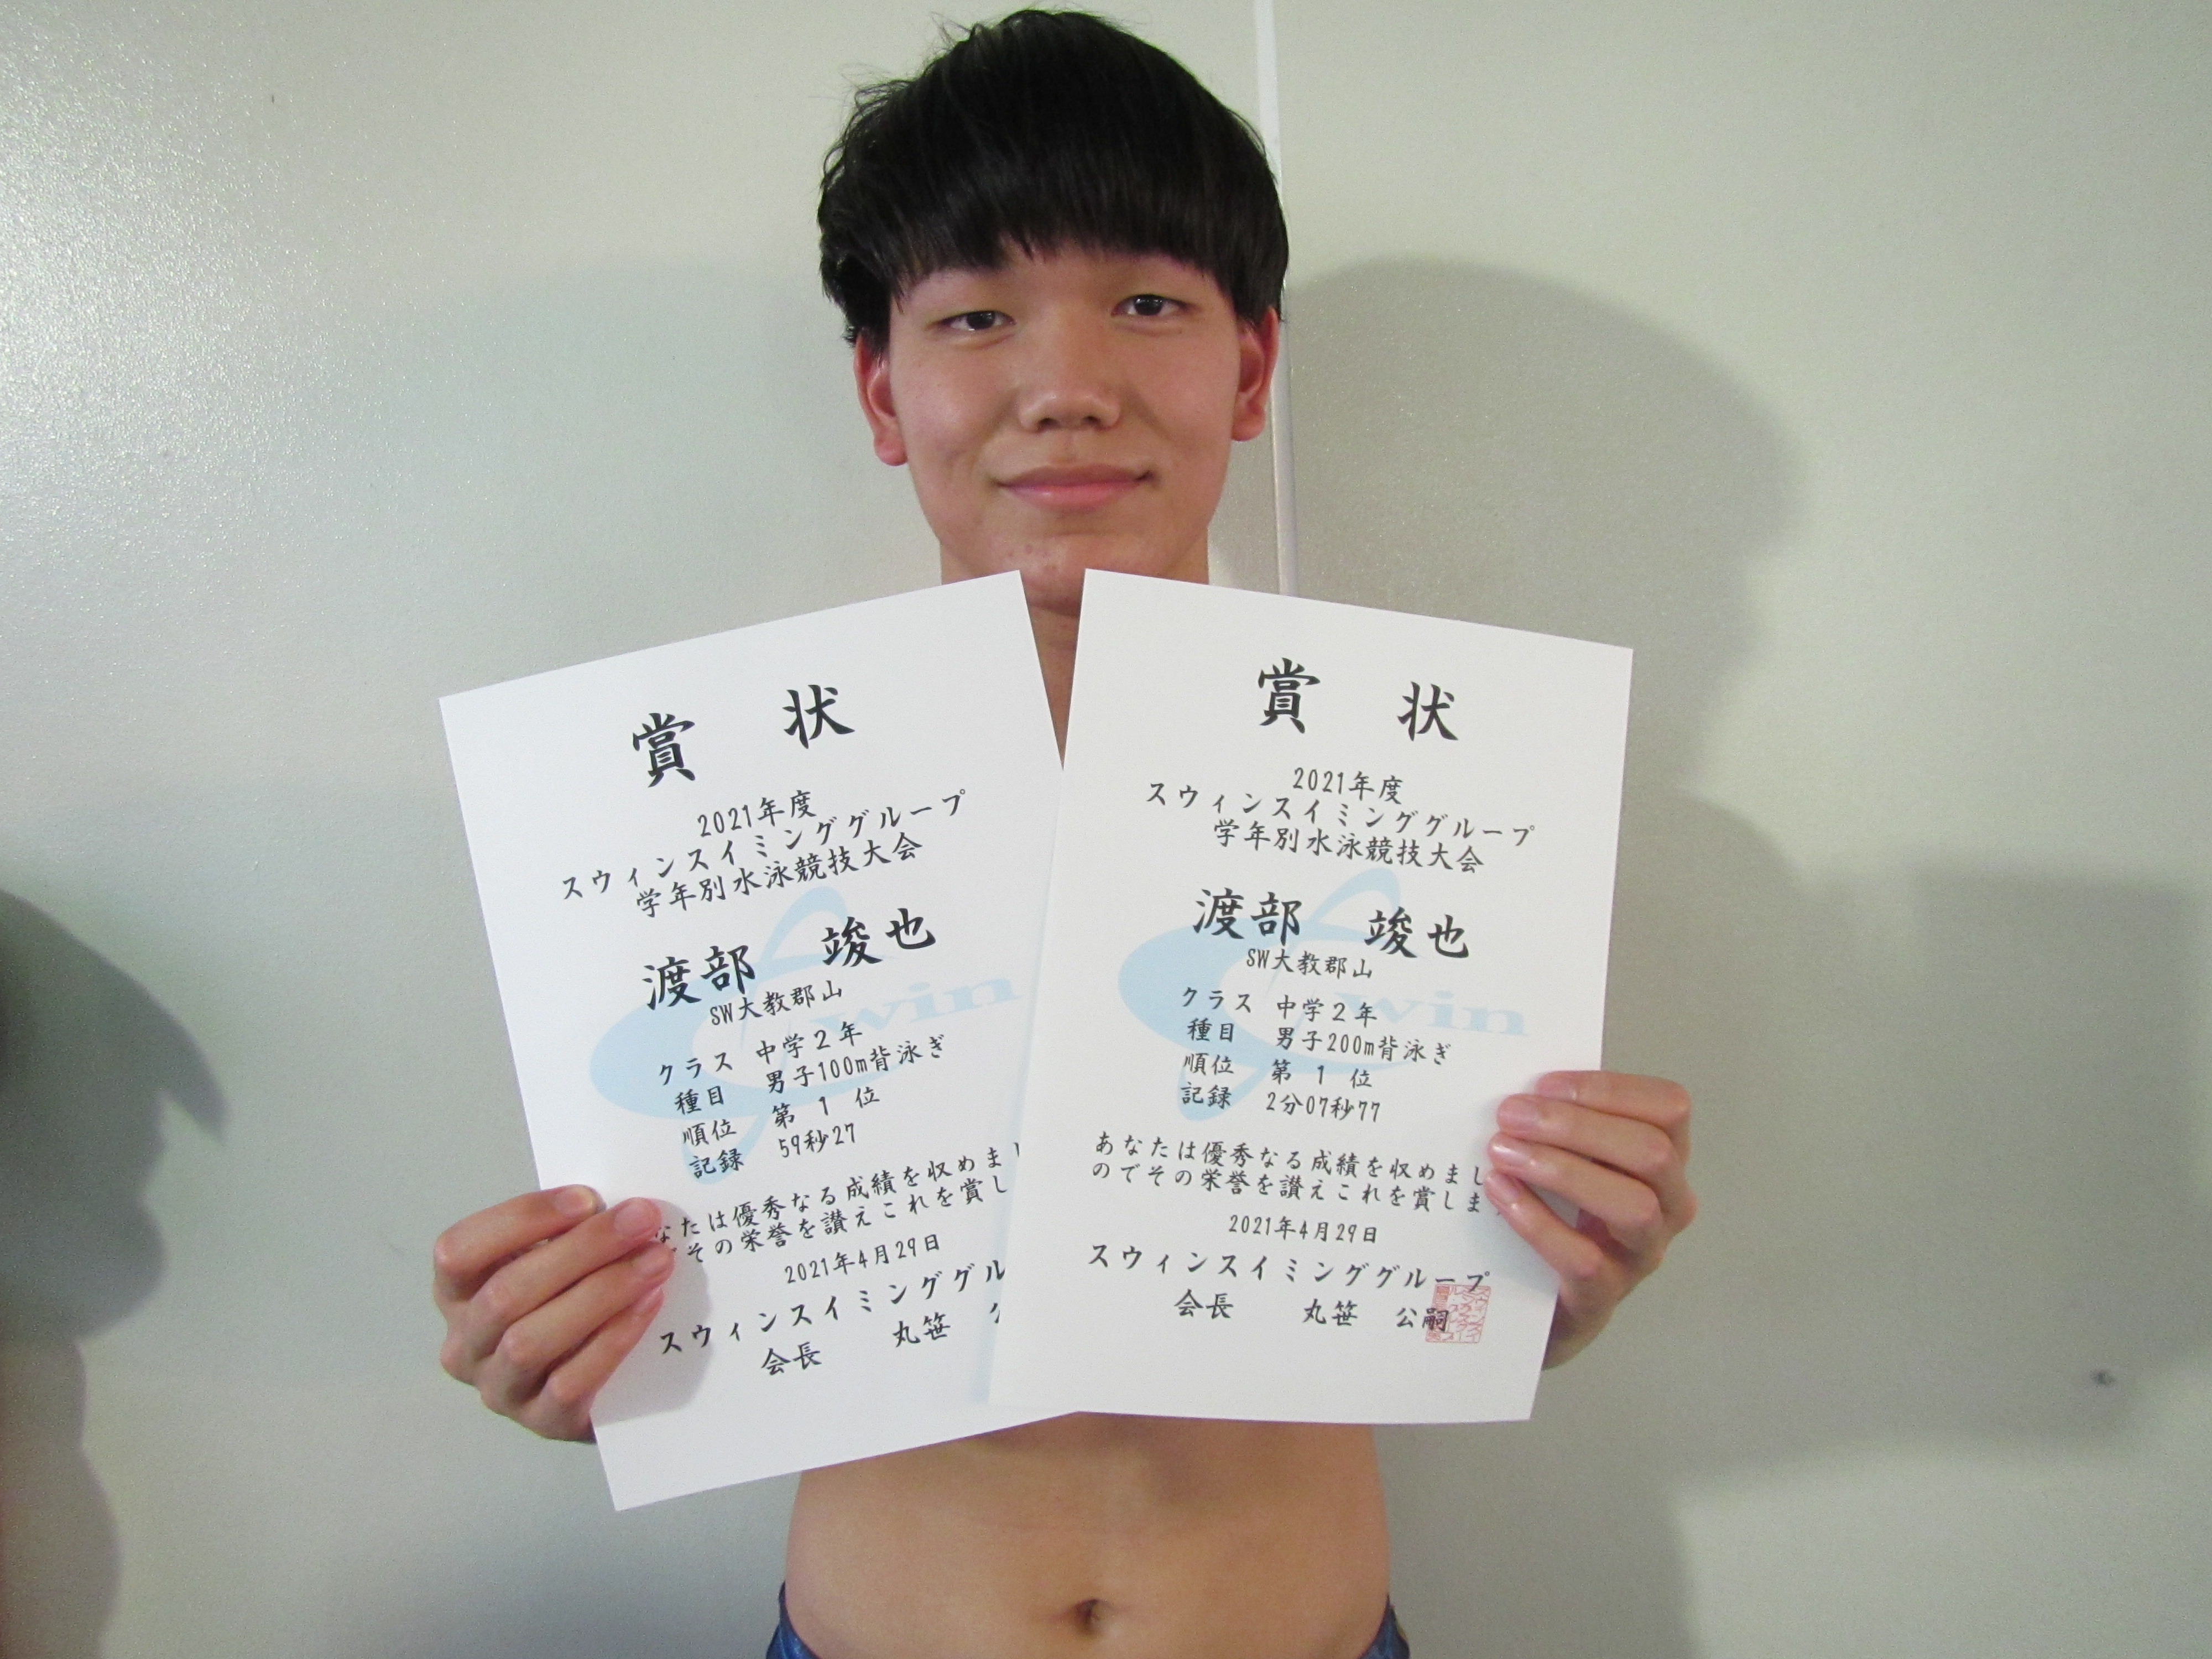 賞 状
2021年度
スウィンスイミンググループ
学年別水泳競技大会
渡部 竣也
SW大教郡山
クラス 中学２年
種目 男子100m背泳ぎ
順位 第 １ 位
記録 59秒27
なたは優秀なる成績を収めまし
でその栄誉を讃えこれを賞し
2021年4月29日
スウィンスイミンググル
会長 丸笹
win
賞 状
2021年度
スウィンスイミンググループ
学年別水泳競技大会
渡部 竣也
SW大教郡山
クラス 中学２年
種目 男子200m背泳ぎ
順位 第 １ 位
記録 2分07秒77
あなたは優秀なる成績を収めまし
のでその栄誉を讃えこれを賞しま
2021年4月29日
スウィンスイミンググループ
会長 丸笹 公嗣
win